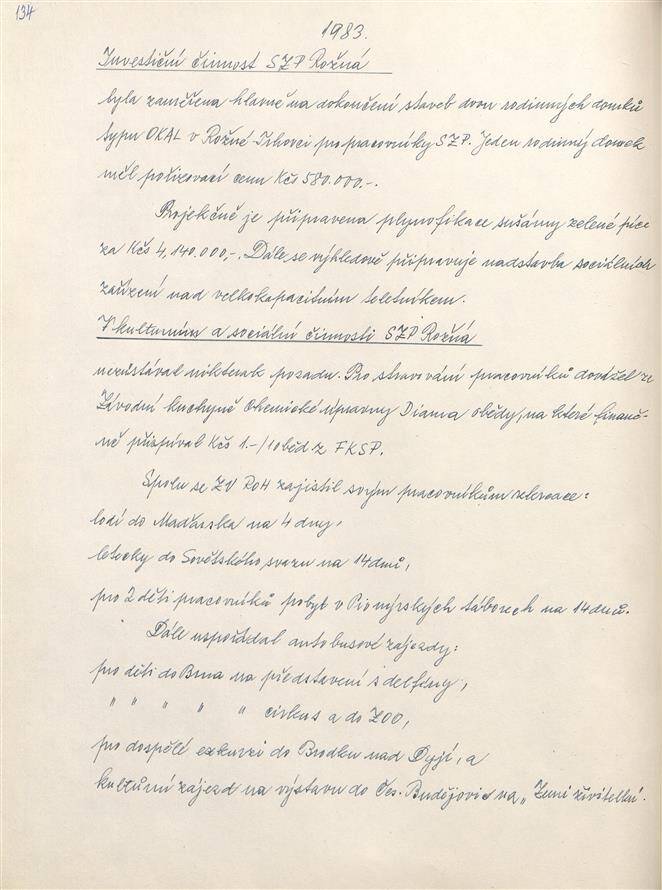 134
1983.
Investiční činnost SZP Rožná
byla zaměřena hlavně na dokončení staveb dvou rodinných domků
typu OKAL v Rožné Jihovci pro pracovníky SZP. Jeden rodinný domek
měl pořizovací cenu Kčs 580.000.-.
Projekčně je připravena plynofikace sušárny zelené píce
za Kčs 4,140.000,-. Dále se výhledově připravuje nadstavba sociálních
zařízení nad velkokapacitním teletníkem.
V kulturní a sociální činnosti SZP Rožná
nezůstával nikterak pozadu. Pro stravování pracovníků dovážel ze
Závodní kuchyně Chemické úpravny Diama obědy, na které finanč-
ně přispíval Kčs 1.-/1 oběd z FKSP.
Spolu se ZV ROH zajistil svým pracovníkům rekreace:
lodí do Maďarska na 4 dny,
letecky do Sovětského svazu na 14 dnů,
pro 2 děti pracovníků pobyt v Pionýrských táborech na 14 dnů.
Dále uspořádal autobusové zájezdy:
pro děti do Brna na představení s delfíny,
" " " " " cirkus a do ZOO,
pro dospělé exkurzi do Brodku nad Dyjí, a
kulturní zájezd na výstavu do Čes. Budějovic na „Zemi živitelku.